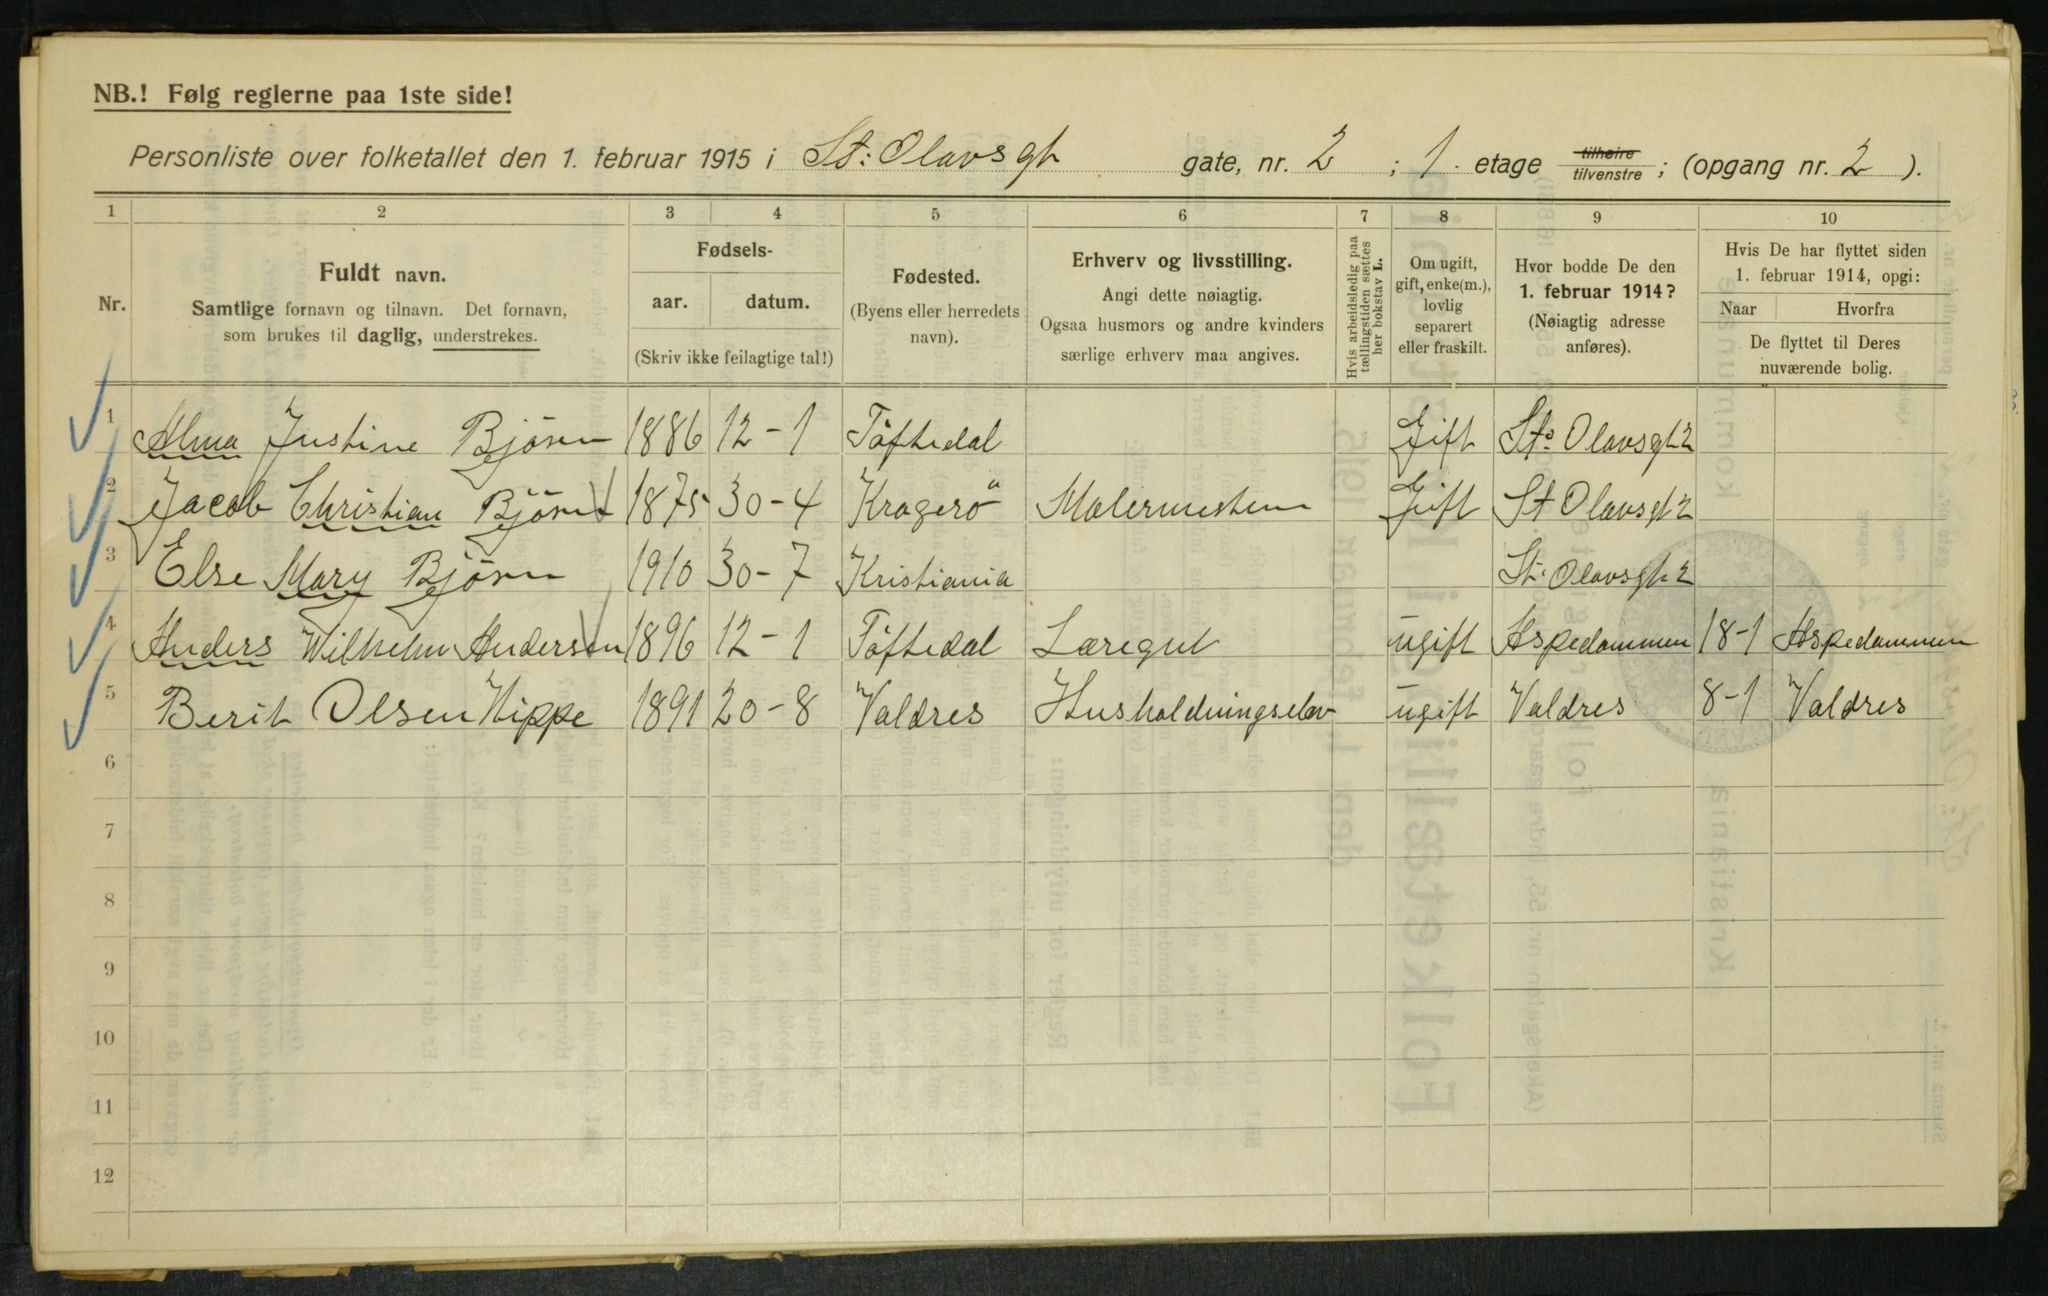 NB.! Følg reglerne paa 1ste side!
Personliste over folketallet den 1. februar 1915 i St: Olavsgt gate, nr. 2 ; 1. etage tilhøire tilvenstre ; (opgang nr. 2 ).
1 2 3 4 5 6 7 8 9 10
Nr.
Fuldt navn.
Samtlige fornavn og tilnavn. Det fornavn,
som brukes til daglig, understrekes.
Fødsels-
aar. datum.
(Skriv ikke feilagtige tal!)
Fødested.
(Byens eller herredets
navn).
Erhverv og livsstilling.
Angi dette nøiagtig.
Ogsaa husmors og andre kvinders
særlige erhverv maa angives.
Hvis arbeidsledig paa
tællingstiden sættes
her bokstav L.
Om ugift,
gift, enke(m.),
lovlig
separert
eller fraskilt.
Hvor bodde De den
1. februar 1914?
(Nøiagtig adresse
anføres).
Hvis De har flyttet siden
1. februar 1914, opgi:
Naar Hvorfra
De flyttet til Deres
nuværende bolig.
1 Alma Justine Bjørn 1886 12-1 Töftedal Gift St: Olavsgt 2
2 Jacob Christian Bjørn 1875 30-4 Kragerö Malermester Gift St Olavsgt 2
3 Else Mary Bjørn 1910 30-7 Kristiania St: Olavsgt 2
4 Anders Wilhelm Andersen 1896 12-1 Töftedal Læregut ugift Aspedammen 18-1 Aspedammen
5 Berit Olsen Hippe 1891 20-8 Valdres Husholdningselev ugift Valdres 8-1 Valdres
6
7
8
9
10
11
12